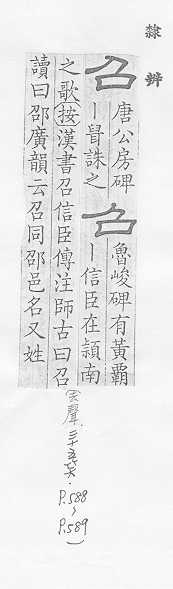 隸辨
召 唐公房碑
丨鼠誅之
召 魯峻碑有黃霸
丨信臣在頴南
之歌按漢書召信臣傳注師古曰召
讀曰邵廣韻云召同邵邑名又姓
(去聲.三十五笑.P.588~P.589)